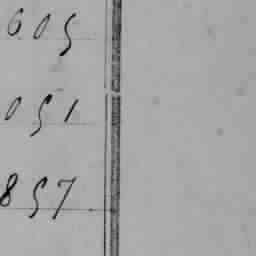 605
051
857